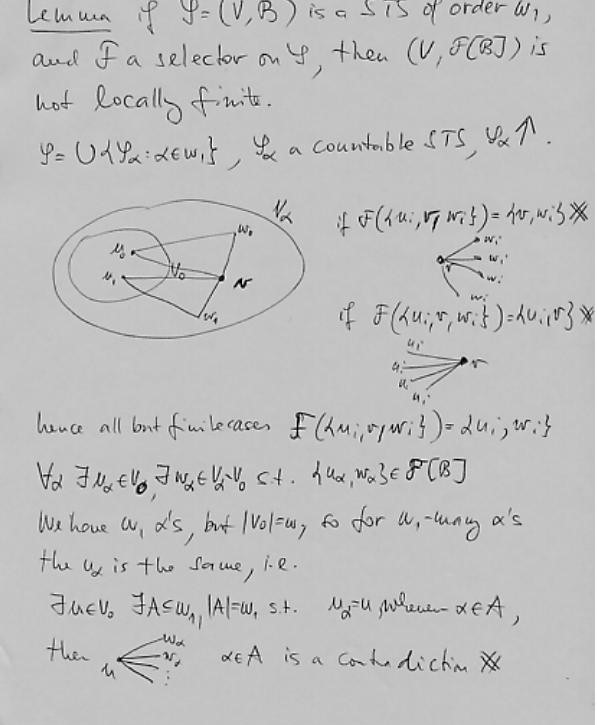 Lemma if 𝒮=(V,B) is a STS of order ω₁,
and F a selector on 𝒮, then (V, F[B]) is
not locally finite.
𝒮= ∪{𝒮α: α∈ω₁}, 𝒮α a countable STS, 𝒮α↑.
Vα
w₀
u₀
V₀
u₁
v
w₁
if F({uᵢ,v,wᵢ})={v,wᵢ} ※
wᵢ
wᵢ
v
wᵢ
wᵢ
if F({uᵢ,v,wᵢ})={uᵢ,v} ※
uᵢ
uᵢ
v
uᵢ
uᵢ
hence all but finite cases F({uᵢ,v,wᵢ})={uᵢ,wᵢ}
∀α ∃uα∈V₀, ∃wα∈Vα\V₀ s.t. {uα,wα}∈F[B]
We have ω₁ α's, but |V₀|=ω, so for ω₁-many α's
the uα is the same, i.e.
∃u∈V₀ ∃A⊆ω₁, |A|=ω₁ s.t. uα=u, whenever α∈A,
then u wα wα ⋮ α∈A is a contradiction ※